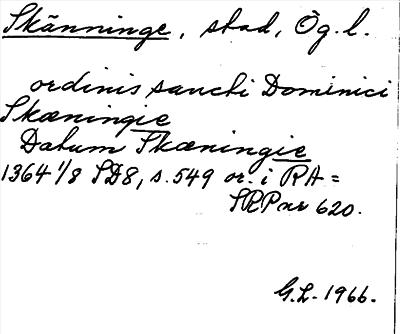 Skänninge, stad, Ög. l.
ordinis sancti Dominici
Skæningie
Datum Skæningie
1364 1/8 SD8, s. 549 or. i RA =
SRP nr 620.
G.L. 1966.